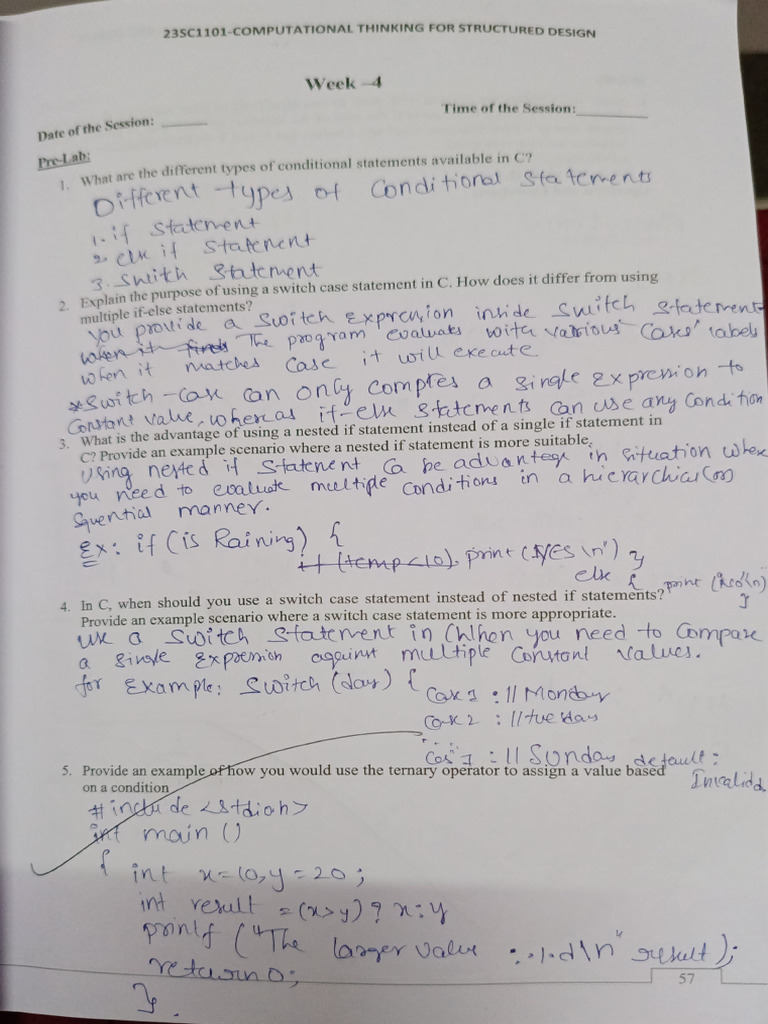 23SC1101-COMPUTATIONAL THINKING FOR STRUCTURED DESIGN
Week –4
Date of the Session: ______
Time of the Session:________
Pre-Lab:
1. What are the different types of conditional statements available in C?
Different types of Conditional Statements
1. if Statement
2. else if Statement
3. Switch Statement
2. Explain the purpose of using a switch case statement in C. How does it differ from using
multiple if-else statements?
you provide a switch Expression inside switch statement
when it finds The program evaluates with various cases' labels
when it matches case it will execute
*Switch-case can only compres a single expression to
Constant value, whereas if-else statements can use any condition
3. What is the advantage of using a nested if statement instead of a single if statement in
C? Provide an example scenario where a nested if statement is more suitable.
Using nested if statement Ca be advantege in situation where
you need to evaluate multiple conditions in a hierarchical (or)
squential manner.
Ex: if (is Raining) {
if (temp<10), print ("YES \n") }
else { print ( \n)
}
4. In C, when should you use a switch case statement instead of nested if statements?
Provide an example scenario where a switch case statement is more appropriate.
use a switch statement in C when you need to compare
a single expression against multiple constant values.
for Example: switch (day) {
Case 1 : // Monday
Case 2 : // tuesday
Case 7 : // Sunday default :
Invalid
5. Provide an example of how you would use the ternary operator to assign a value based
on a condition
#include <stdioh>
int main ()
{ int x=10, y=20;
int result =(x>y)? x:y
printf ("The larger value : %d\n" result);
return 0;
}.
57